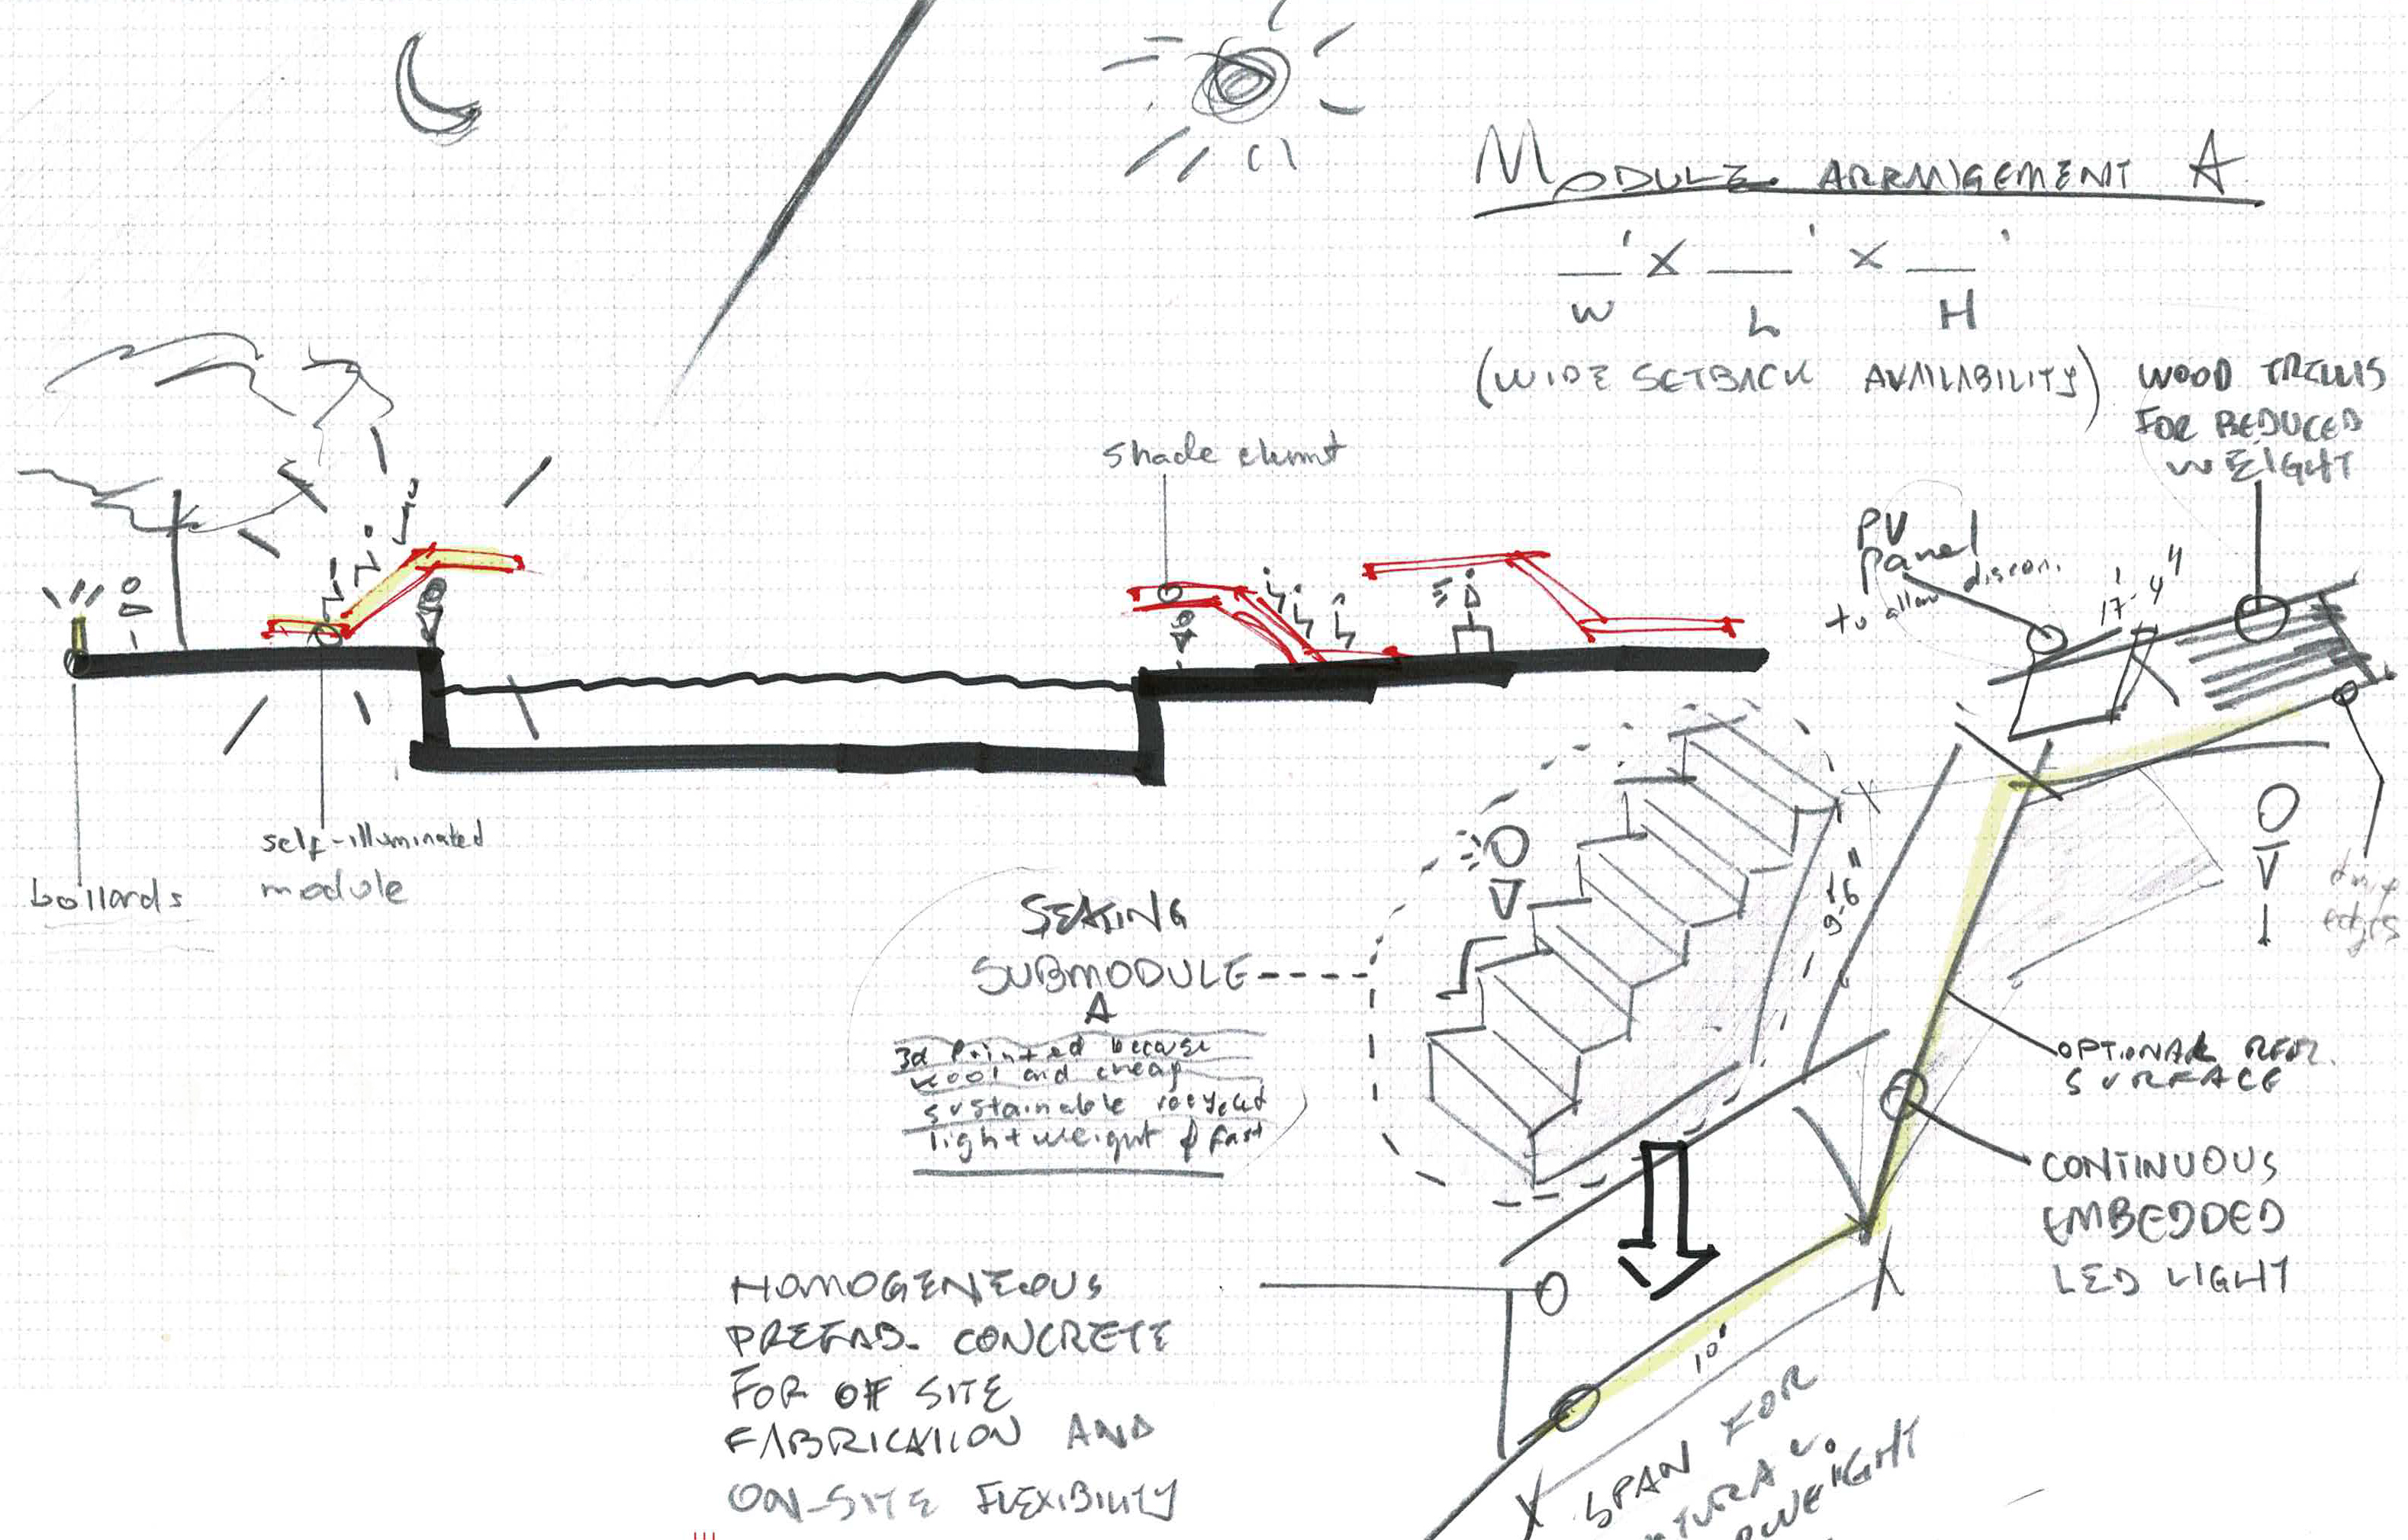 MODULE ARRANGEMENT A
' X ' X '
W L H
(WIDE SETBACK AVAILABILITY)
WOOD TRELLIS
FOR REDUCED
WEIGHT
shade elemnt
PV
panel
to allow discon.
17'-4"
self-illuminated
module
bollards
SEATING
SUBMODULE
A
3d Printed because
kool and cheap
sustainable recycled
lightweight & fast
9'-6"
drip
edges
OPTIONAL REFL.
SURFACE
CONTINUOUS
EMBEDDED
LED LIGHT
HOMOGENEOUS
PREFAB. CONCRETE
FOR OFF SITE
FABRICATION AND
ON-SITE FLEXIBILITY
10'
SPAN FOR